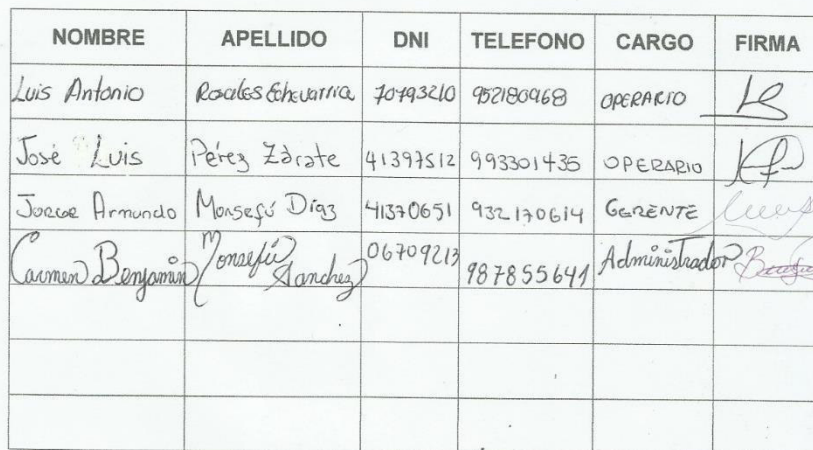 NOMBRE APELLIDO DNI TELEFONO CARGO FIRMA
Luis Antonio Rosales Echevarria 70793210 952180968 OPERARIO
José Luis Pérez Zárate 41397512 993301435 OPERARIO
Jorge Armando Monsefú Díaz 41370651 932170614 GERENTE
Carmen Benjamin Monsefú Sanchez 06709213 987855641 Administrador